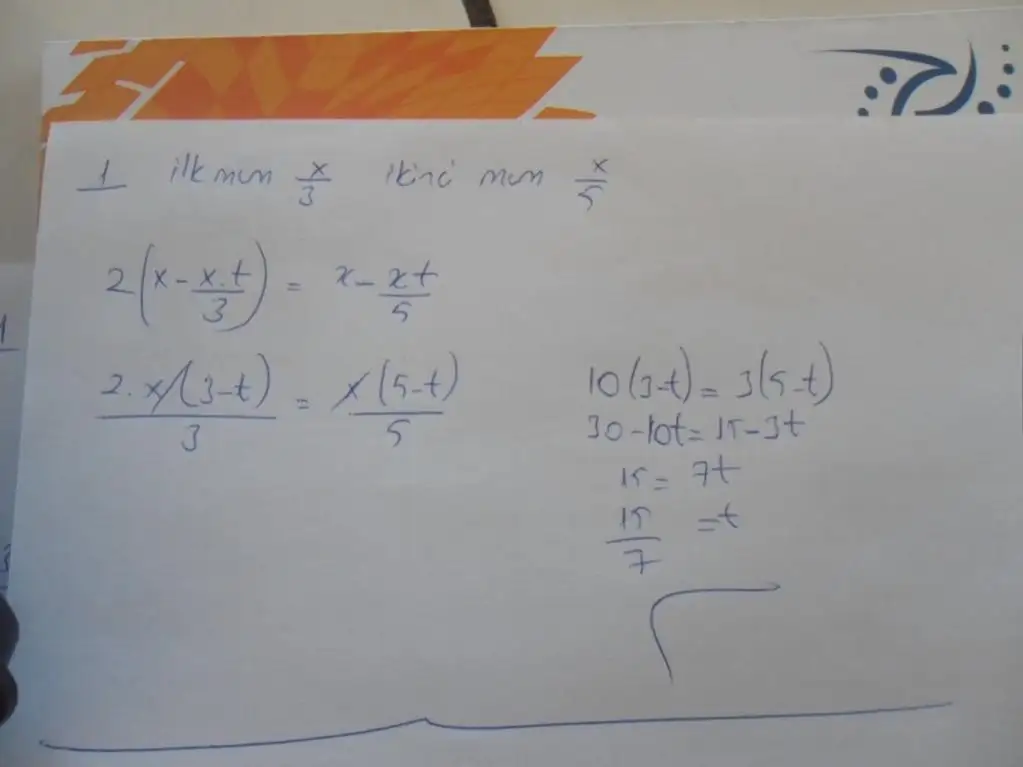 1 ilk mum x/3 ikinci mum x/5
2(x - x.t/3) = x - xt/5
2.x(3-t)/3 = x(5-t)/5
10(3-t) = 3(5-t)
30-10t = 15-3t
15 = 7t
15/7 = t